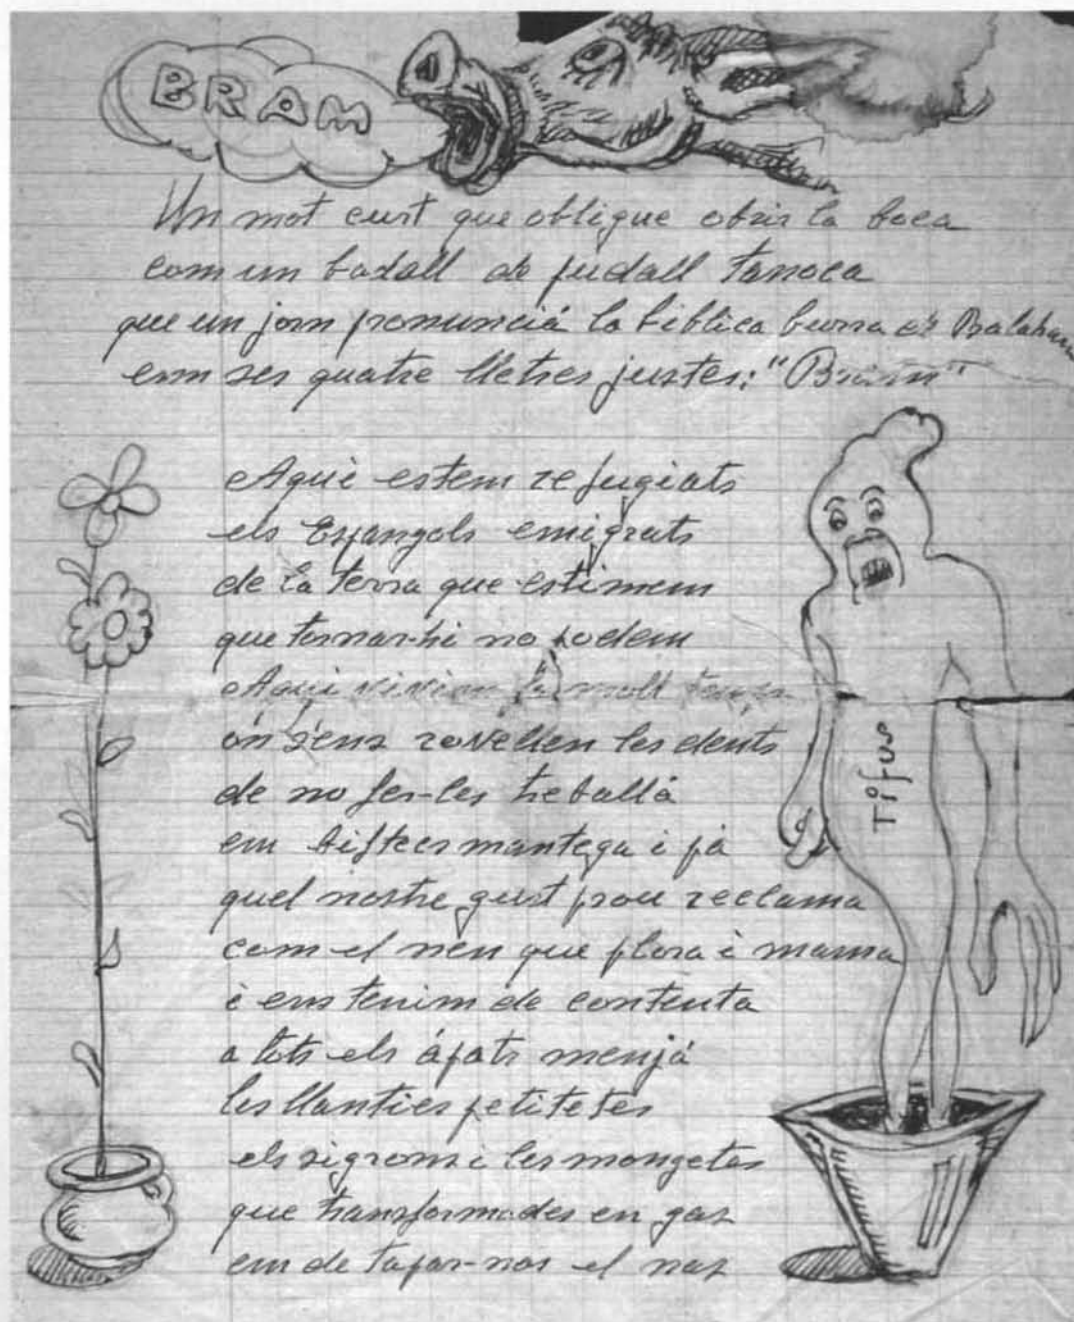 BRAM
Un mot curt que obligue obrir la boca
com un badall de judall tanoca
que un jorn pronunciá la biblica burra de Balaham
em ses quatre lletres justes: "Bram"
Aquí estem refugiats
els Espangols emigrats
de la terra que estimem
que tornar-hi no podem
Aqui vivim fa molt temps
ón s'ens rovellen les dents
de no fer-les treballá
em biftecs mantega i pá
quel nostre gust prou reclama
com el nen que plora i mama
i ens tenim de contentá
a tots els ápats menjá
les llanties petitetes
els sigrons i les mongetes
que transformades en gas
em de tapar-nos el nas
Tifus